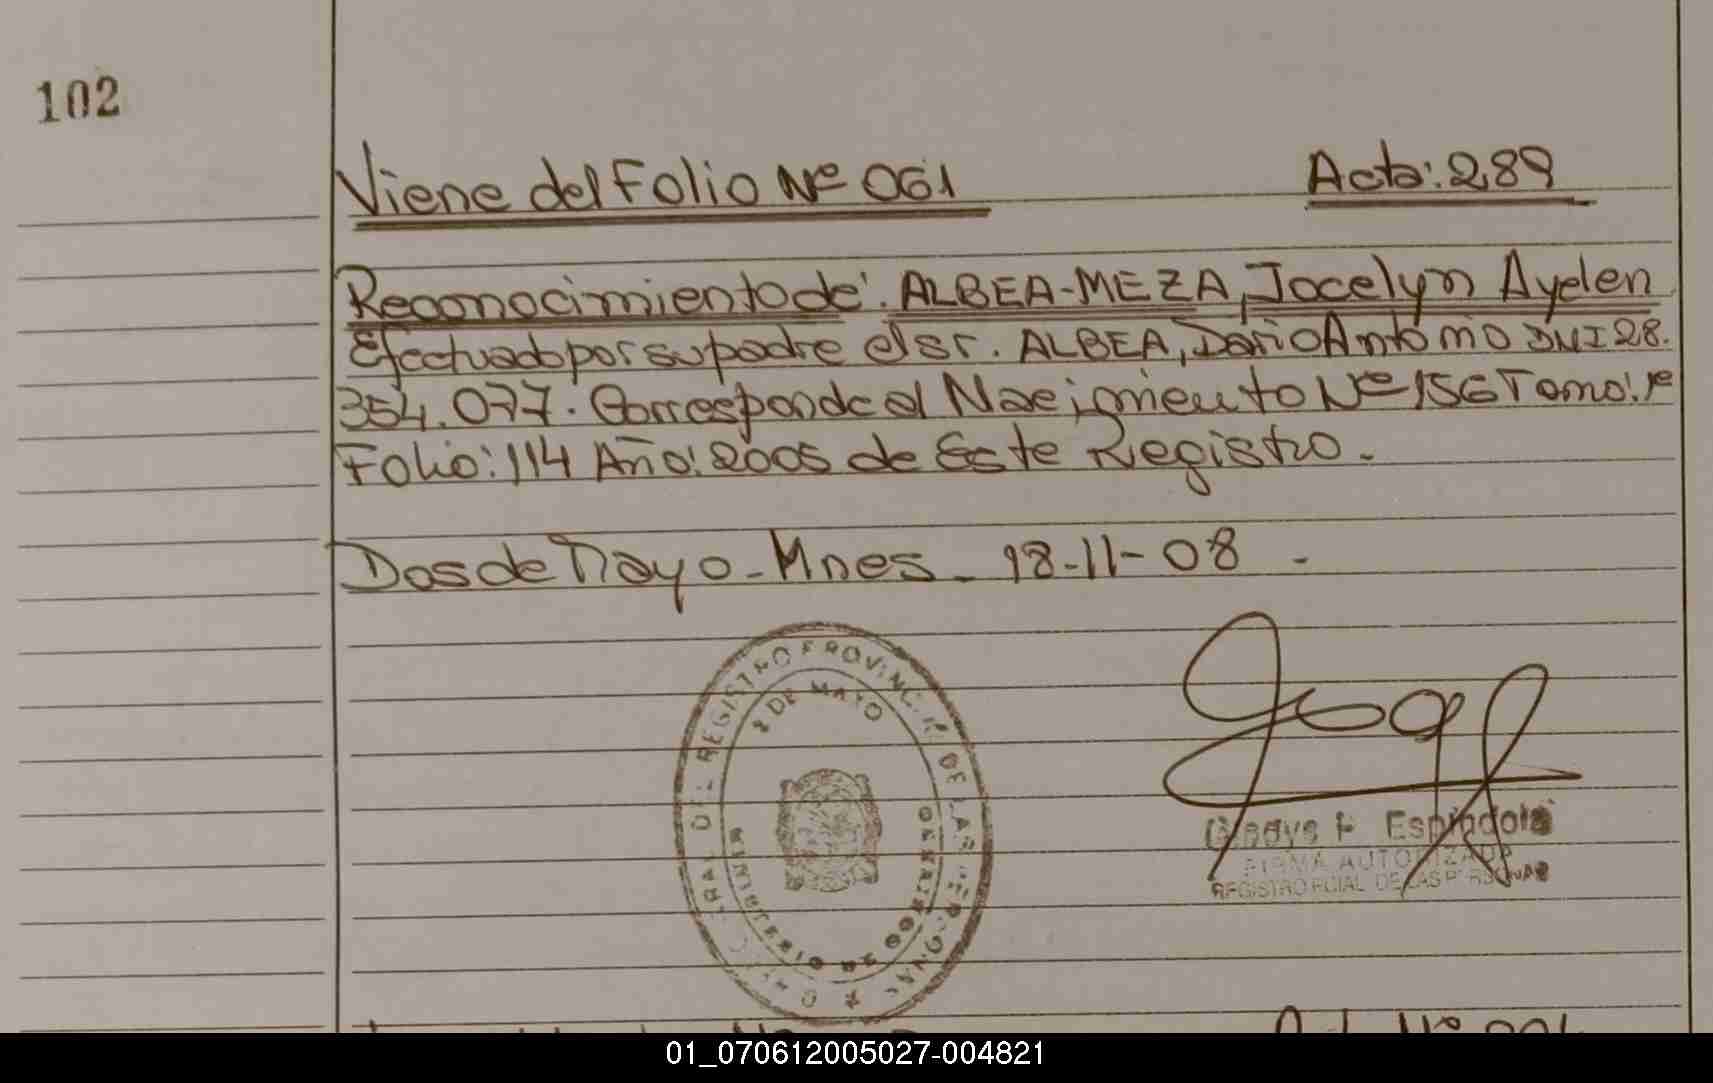 102
Viene del Folio Nº 061 Acta: 289
Reconocimiento de: ALBEA-MEZA, Jocelyn Ayelen
Efectuado por su padre el sr. ALBEA, Dario Antonio DNI 28.
354.077. Corresponde al Nacimiento Nº 156 Tomo: 1º
Folio: 114 Año: 2005 de Este Registro.
Dos de Mayo - Mnes - 18-11-08 -
DEL REGISTRO PROVINCIAL DE LAS PERSONAS
2 DE MAYO
Gladys F. Espindola
FIRMA AUTORIZADA
REGISTRO PCIAL DE LAS PERSONAS
01_070612005027-004821